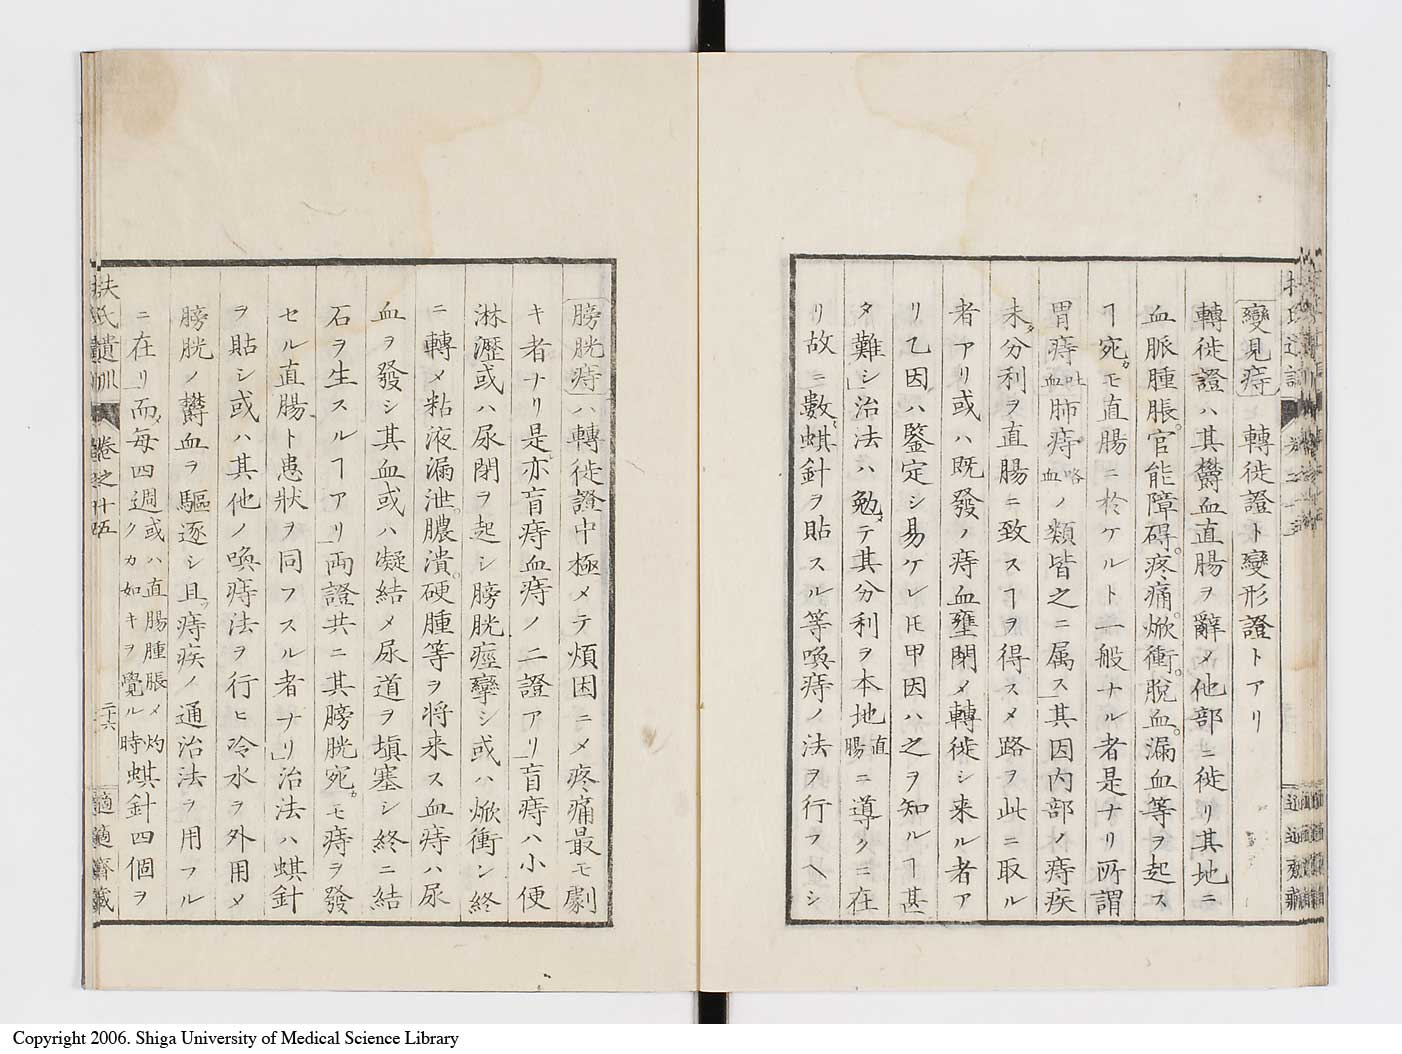 變見痔 轉徙證ト變形證トアリ
轉徙證ハ其欝血直腸ヲ辭メ他部ニ徙リ其地ニ
血脈腫脹。官能障碍。疼痛。焮衝。脫血。漏血等ヲ起ス
ヿ宛モ直腸ニ於ケルト一般ナル者是ナリ所謂
胃痔吐血肺痔咯血ノ類皆之ニ属ス」其因内部ノ痔疾
未タ分利ヲ直腸ニ致スヿヲ得スメ路ヲ此ニ取ル
者アリ或ハ既發ノ痔血壅閉メ轉徙シ来ル者ア
リ乙因ハ鑒定シ易ケレ𪜈甲因ハ之ヲ知ルヿ甚
タ難シ」治法ハ勉テ其分利ヲ本地直腸ニ導クニ在
リ故ニ數蜞針ヲ貼スル等喚痔ノ法ヲ行フヘシ
膀胱痔ハ轉徙證中極メテ煩困ニメ疼痛最モ劇
キ者ナリ是亦盲痔血痔ノ二證アリ」盲痔ハ小便
淋瀝或ハ尿閉ヲ起シ膀胱痙攣シ或ハ焮衝シ終
ニ轉メ粘液漏泄。膿潰。硬腫等ヲ将来ス血痔ハ尿
血ヲ發シ其血或ハ凝結メ尿道ヲ塡塞シ終ニ結
石ヲ生スルヿアリ」両證共ニ其膀胱宛モ痔ヲ發
セル直腸ト患狀ヲ同フスル者ナリ」治法ハ蜞針
ヲ貼シ或ハ其他ノ喚痔法ヲ行ヒ冷水ヲ外用メ
膀胱ノ欝血ヲ驅逐シ且ツ痔疾ノ通治法ヲ用フル
ニ在リ」而メ每四週或ハ直腸腫脹メ灼クカ如キヲ覺ル時蜞針四個ヲ
扶氏遺訓 卷之廿五 二十六 適適齋藏